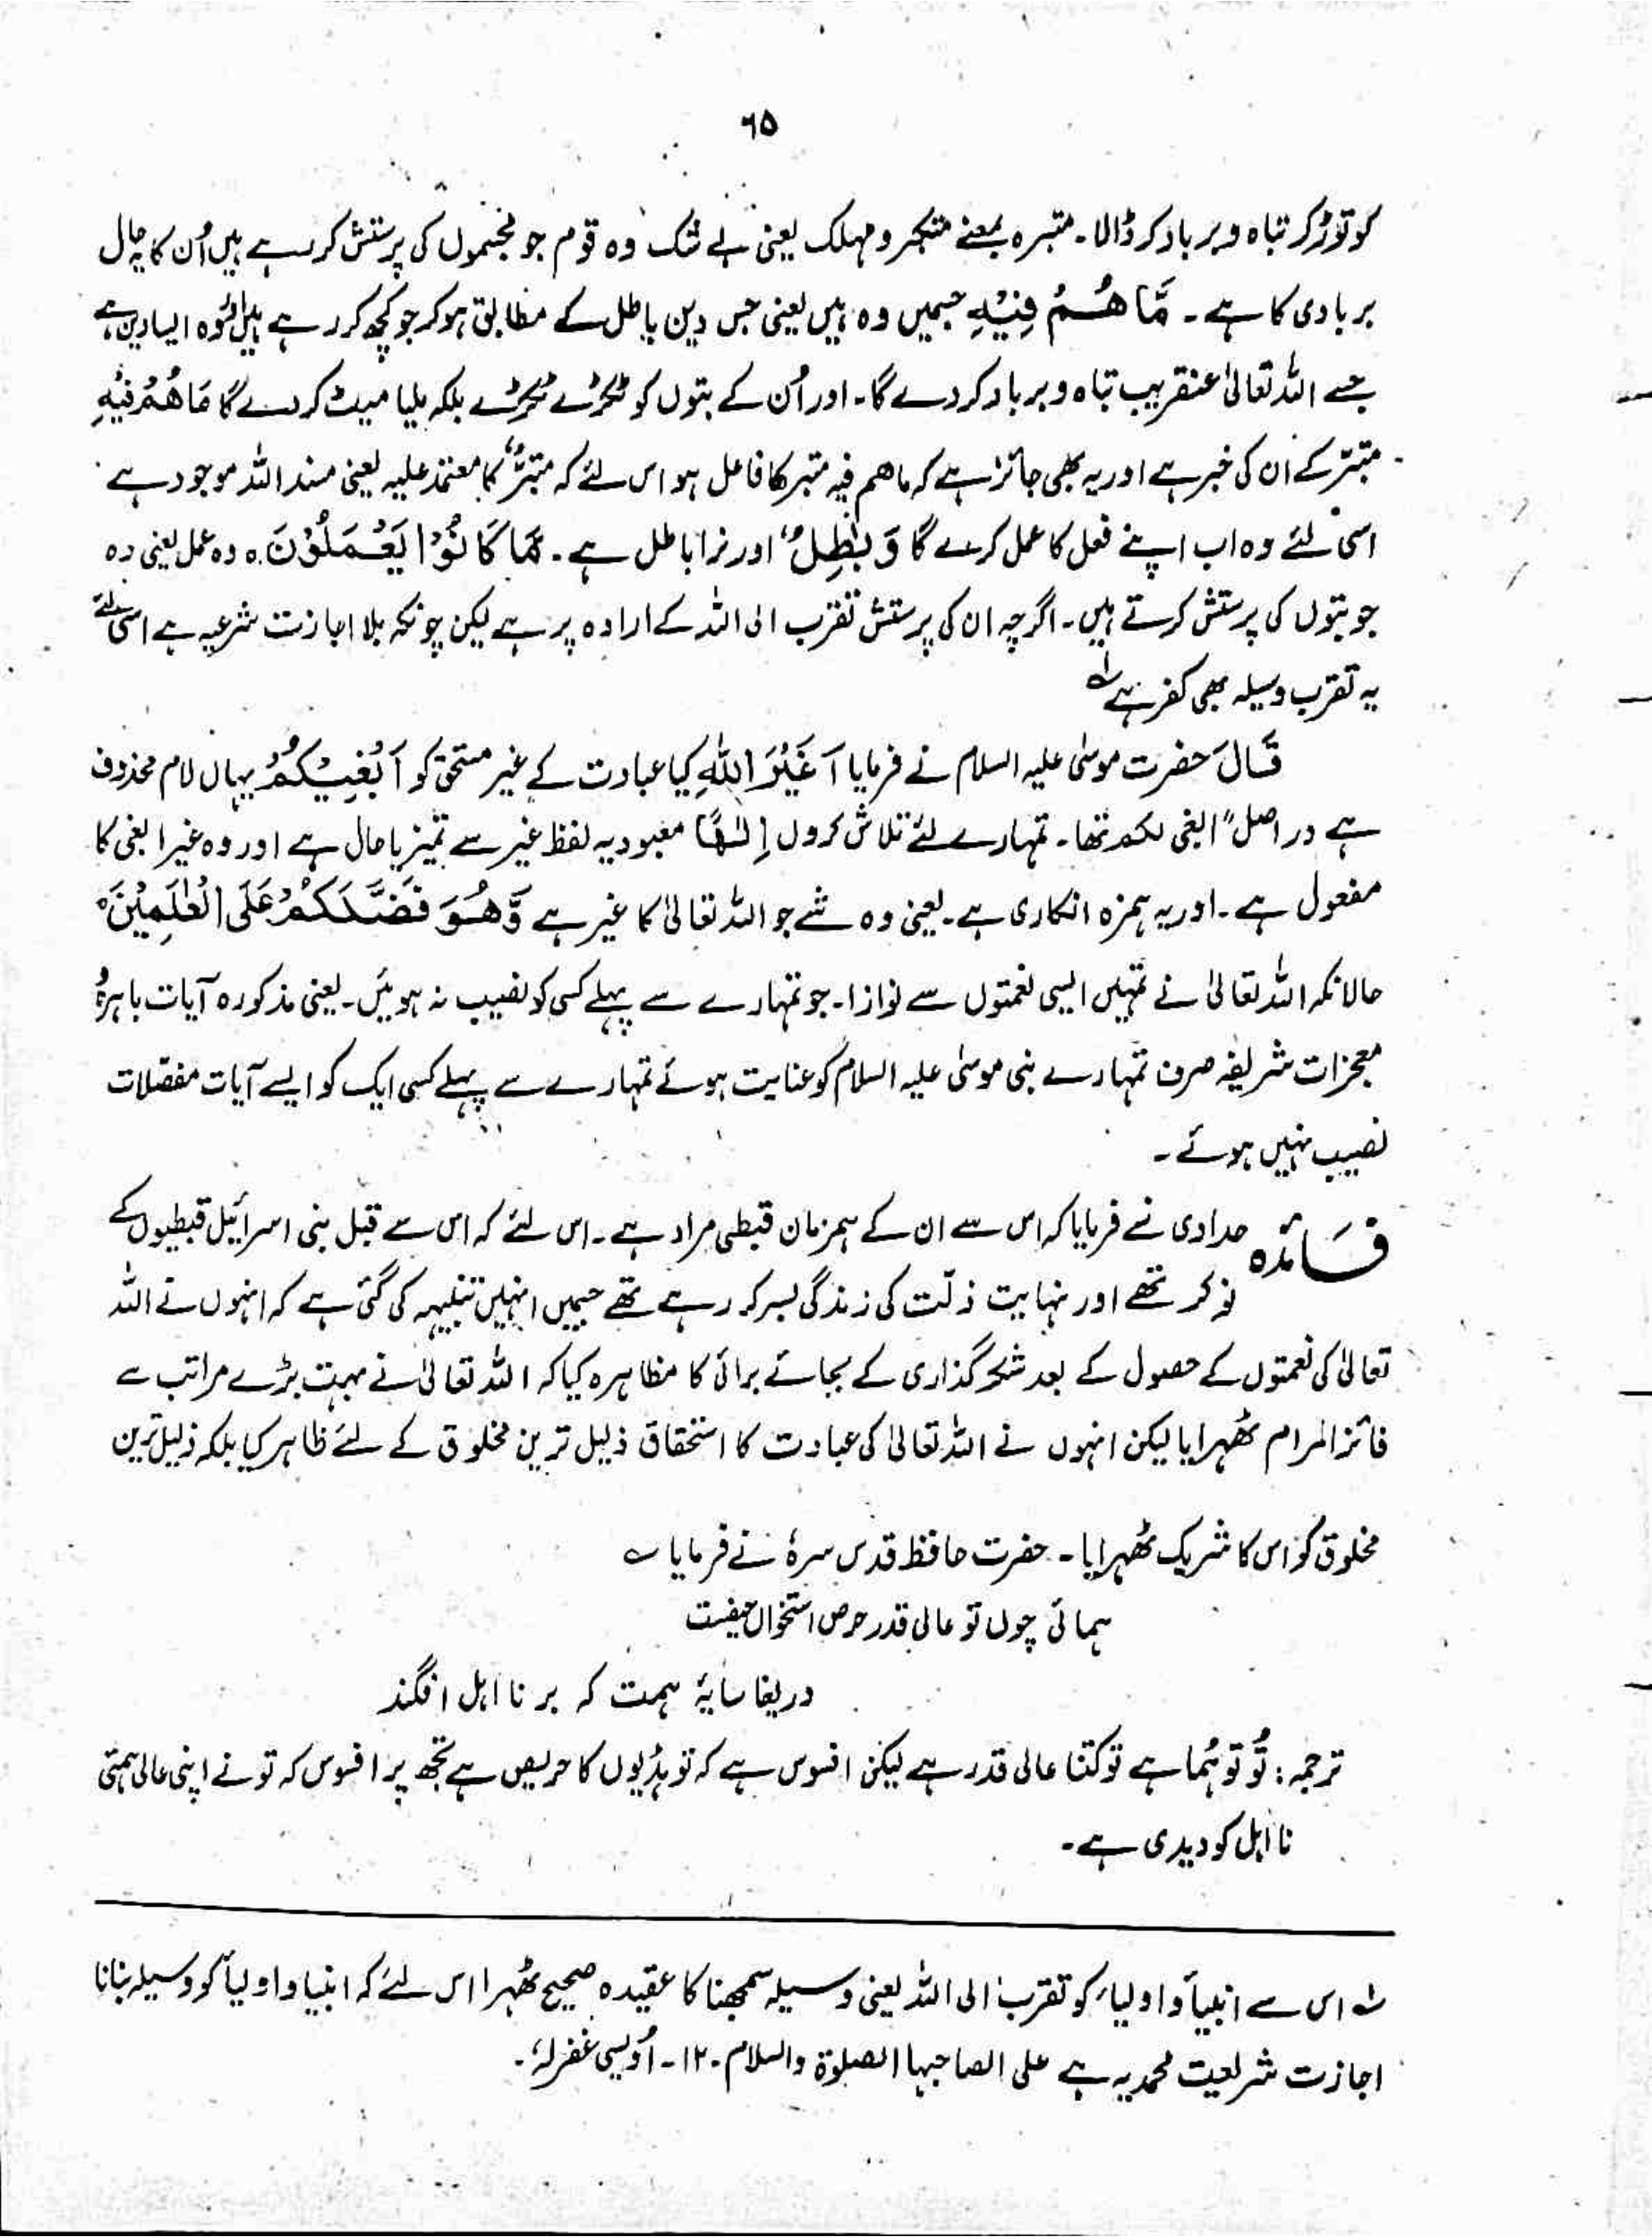 ٦٥
کو توڑ کر تباہ و برباد کر ڈالا۔ متبرہ بمعنے متبکر و مہلک یعنی بے شک وہ قوم جو مجسموں کی پرستش کر رہے ہیں اُن کا یہ حال
بربادی کا ہے۔ مَّا هُمْ فِيْهِ جسمیں وہ ہیں یعنی جس دین باطل کے مطابق ہو کر جو کچھ کر رہے ہیں وہ ایسا دین ہے
جسے اللہ تعالیٰ عنقریب تباہ و برباد کر دے گا۔ اور اُن کے بتوں کو ٹکڑے ٹکڑے بلکہ ملیا میٹ کر دے گا مَا هُمْ فِيْهِ
متبرّ کے ان کی خبر ہے اور یہ بھی جائز ہے کہ ماهم فیہ متبر کا فاعل ہو اس لئے کہ متبرٌّ کا معتمد علیہ یعنی مسند اللہ موجود ہے
اسی لئے وہ اب اپنے فعل کا عمل کرے گا وَ بٰطِلٌ اور نرا باطل ہے۔ مَّا كَانُوْا يَعْمَلُوْنَ ہ وہ عمل یعنی وہ
جو بتوں کی پرستش کرتے ہیں۔ اگرچہ ان کی پرستش تقرب الی اللہ کے ارادہ پر ہے لیکن چونکہ بلا اجازت شرعیہ ہے اسی لئے
یہ تقرب وسیلہ بھی کفر ہے لے
قَالَ حضرت موسیٰ علیہ السلام نے فرمایا اَغَيْرَ اللّٰهِ کیا عبادت کے غیر مستحق کو اَبْغِيْكُمْ یہاں لام محذوف
ہے در اصل "ابغی لکم تھا۔ تمہارے لئے تلاش کروں اِلٰهًا معبود یہ لفظ غیر سے تمیز یا حال ہے اور وہ غیر ابغی کا
مفعول ہے۔ اور یہ ہمزہ انکاری ہے۔ یعنی وہ شے جو اللہ تعالیٰ کا غیر ہے وَّهُوَ فَضَّلَكُمْ عَلَى الْعٰلَمِيْنَ ہ
حالانکہ اللہ تعالیٰ نے تمہیں ایسی نعمتوں سے نوازا۔ جو تمہارے سے پہلے کسی کو نصیب نہ ہوئیں۔ یعنی مذکورہ آیات باہرہ
معجزات شریفہ صرف تمہارے نبی موسیٰ علیہ السلام کو عنایت ہوئے تمہارے سے پہلے کسی ایک کو ایسے آیات مفصلات
نصیب نہیں ہوئے۔
فائدہ حدادی نے فرمایا کہ اس سے ان کے ہمزمان قبطی مراد ہے۔ اس لئے کہ اس سے قبل بنی اسرائیل قبطیوں کے
نوکر تھے اور نہایت ذلّت کی زندگی بسر کر رہے تھے جسمیں انہیں تنبیہہ کی گئی ہے کہ انہوں نے اللہ
تعالیٰ کی نعمتوں کے حصول کے بعد شکر گذاری کے بجائے برائی کا مظاہرہ کیا کہ اللہ تعالیٰ نے بہت بڑے مراتب سے
فائز المرام ٹھہرایا لیکن انہوں نے اللہ تعالیٰ کی عبادت کا استحقاق ذلیل ترین مخلوق کے لئے ظاہر کیا بلکہ ذلیل ترین
مخلوق کو اس کا شریک ٹھہرایا۔ حضرت حافظ قدس سرہٗ نے فرمایا ؎
ہمائی چوں تو عالی قدر حرص استخواں حیفست
دریغا سایۂ ہمت کہ بر نا اہل افگند
ترجمہ: تُو تو ہُما ہے تو کتنا عالی قدر ہے لیکن افسوس ہے کہ تو ہڈیوں کا حریص ہے تجھ پر افسوس کہ تو نے اپنی عالی ہمتی
نا اہل کو دیدی ہے۔
لے اس سے انبیأ و اولیأ کو تقرب الی اللہ یعنی وسیلہ سمجھنا کا عقیدہ صحیح ٹھہرا اس لئے کہ انبیا و اولیأ کو وسیلہ بنانا
اجازت شریعت محمدیہ ہے علی الصاحبہا الصلوۃ والسلام۔ ۱۲۔ اُویسی غفرلہٗ۔